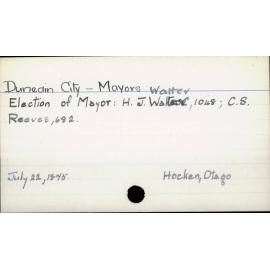 Dunedin City – Mayors
Walter
Election of Mayor: H. J. Wallace, 1048; C.S.
Reeves, 682.
July 22, 1875.
Hocken, Otago